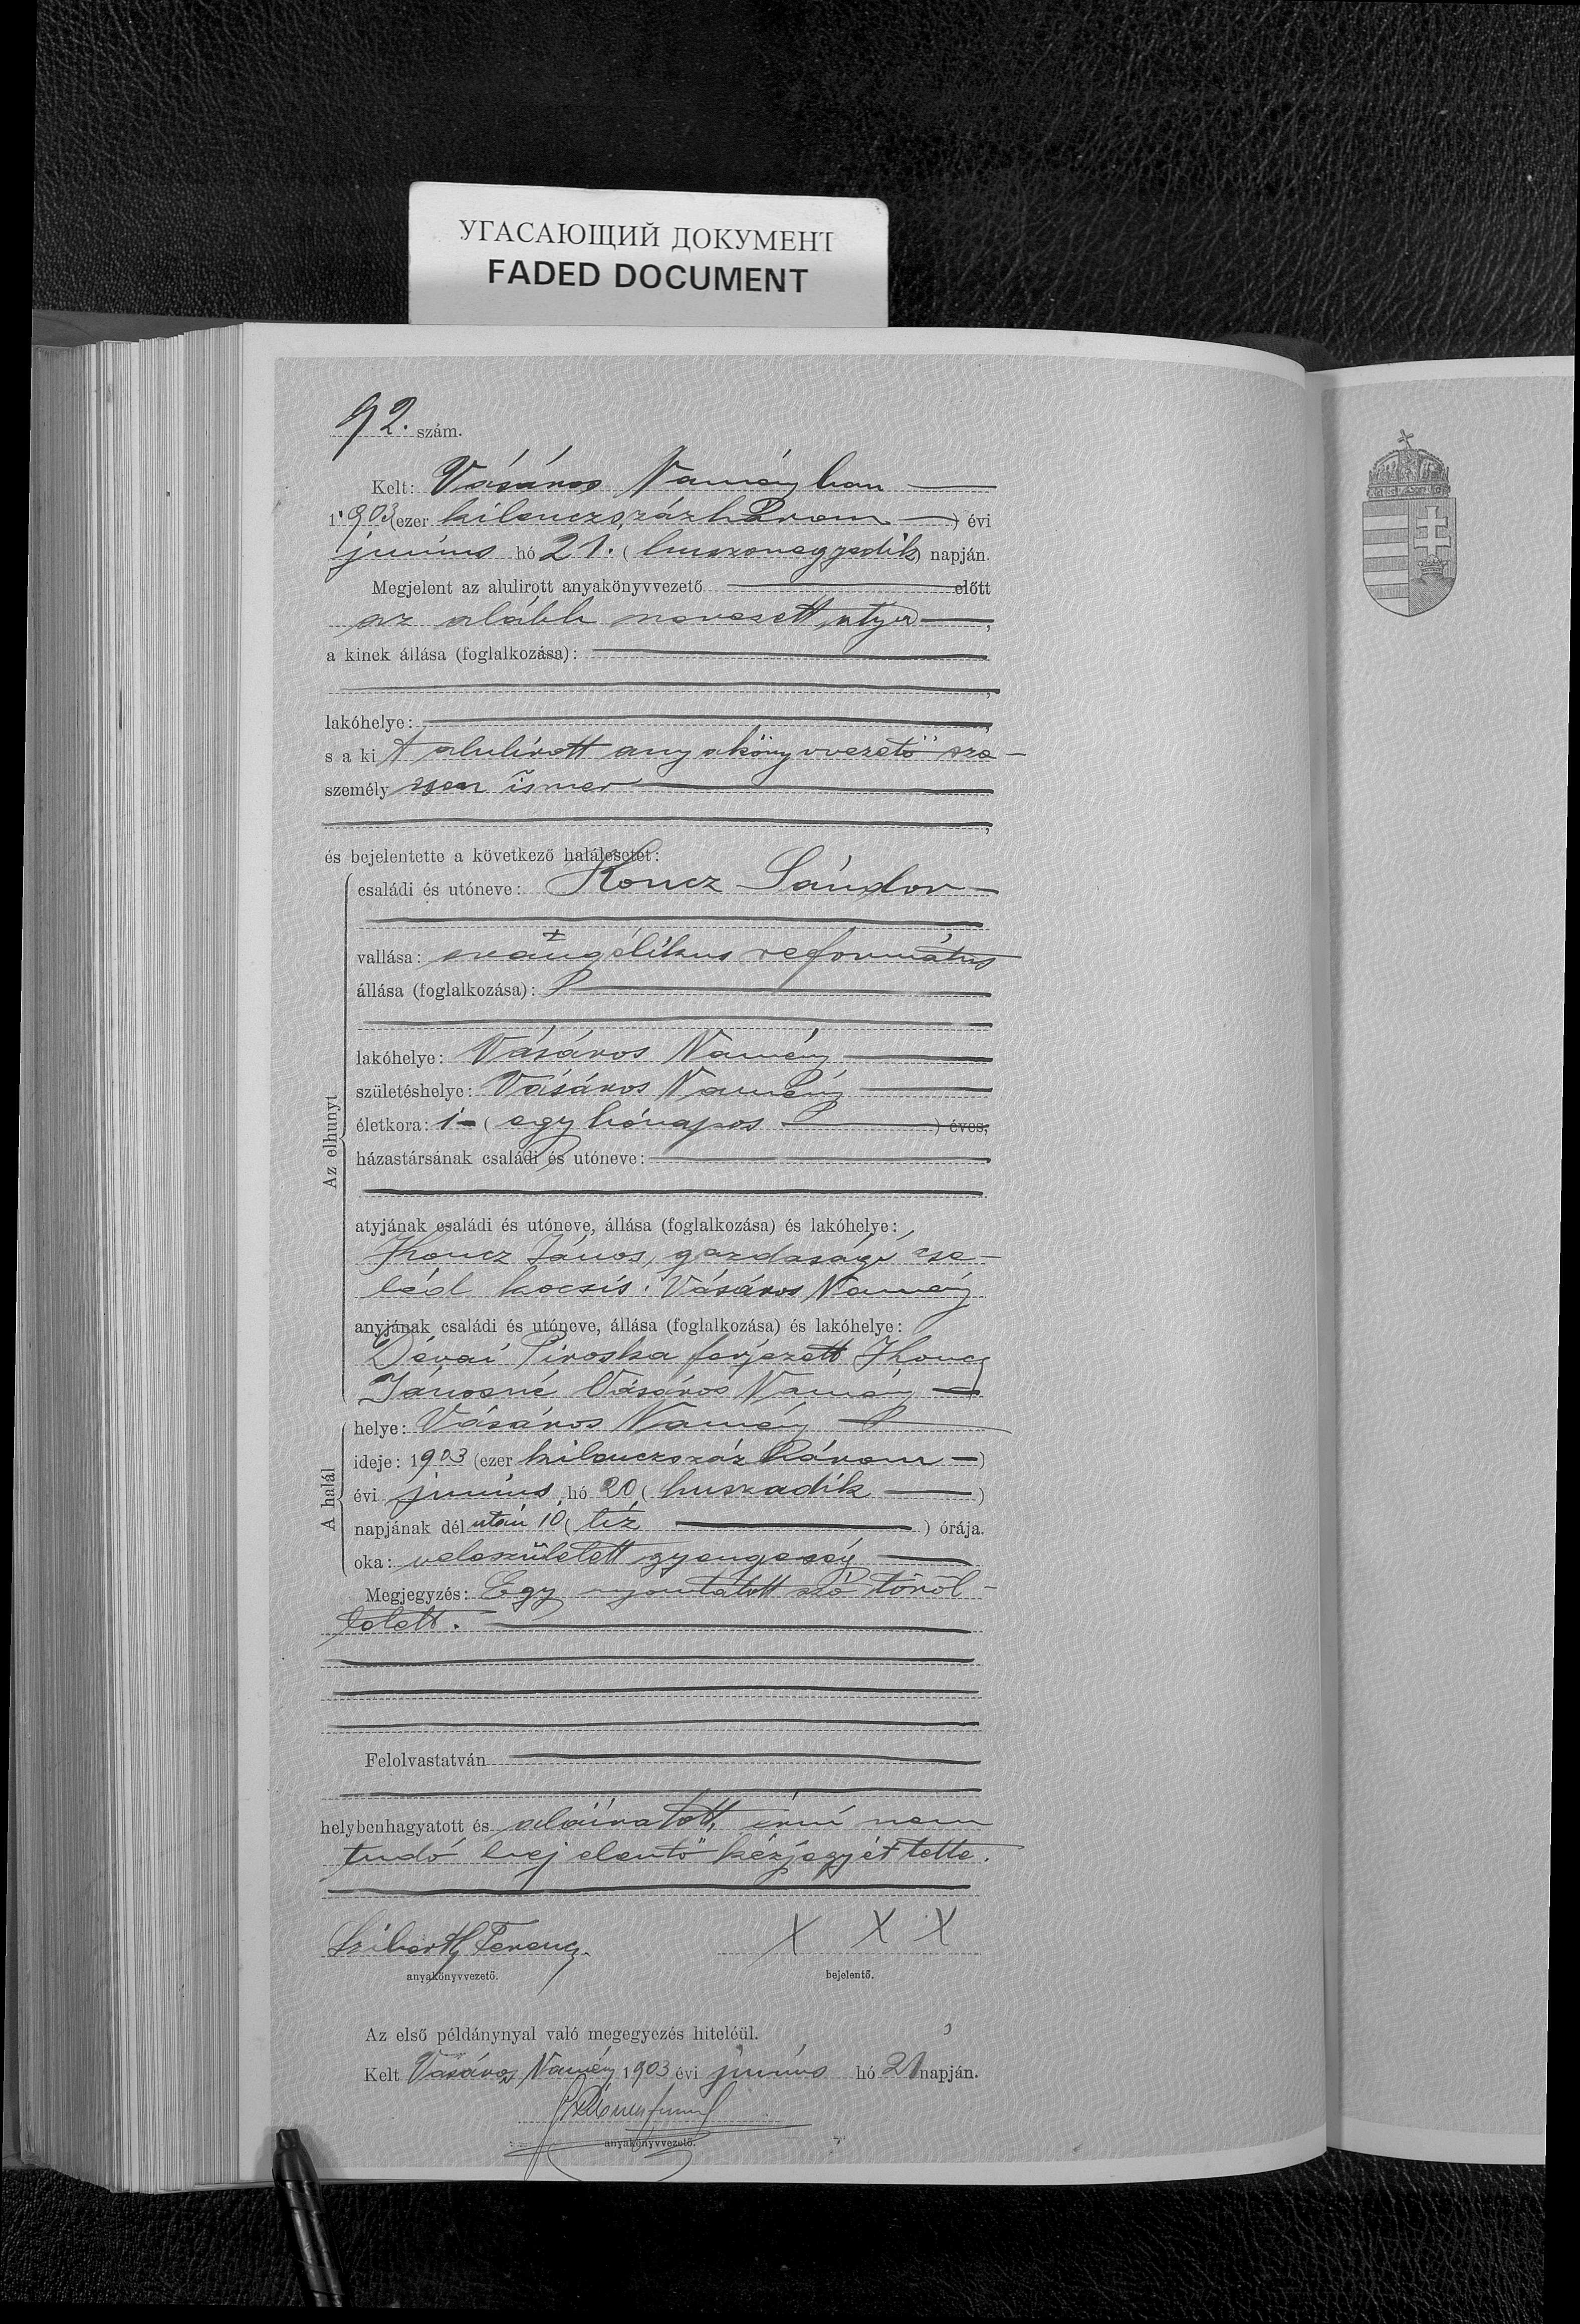 УГАСАЮЩИЙ ДОКУМЕНТ
FADED DOCUMENT
92. szám.
Kelt: Vásáros Naményban
1903 (ezer kilenczszázhárom) évi
junius hó 21. (huszonegyedik) napján.
Megjelent az alulirott anyakönyvvezető előtt
az alább nevezett atya,
a kinek állása (foglalkozása):
lakóhelye:
s a ki t alulirott anyakönyvvezető sze-
személy sen ismer
és bejelentette a következő halálesetet:
Az elhunyt
családi és utóneve: Koncz Sándor
vallása: evángélikus református
állása (foglalkozása):
lakóhelye: Vásáros Namény
születéshelye: Vásáros Namény
életkora: 1 - (egy hónapos) éves;
házastársának családi és utóneve:
atyjának családi és utóneve, állása (foglalkozása) és lakóhelye:
Koncz János, gazdasági cse-
léd kocsis. Vásáros Namény
anyjának családi és utóneve, állása (foglalkozása) és lakóhelye:
Dévai Piroska férjezett Koncz
Jánosné Vásáros Namény
A halál
helye: Vásáros Namény
ideje: 1903 (ezer kilenczszáz három)
évi junius hó 20 (huszadik)
napjának dél után 10 (tíz) órája.
oka: veleszületett gyengeség
Megjegyzés: Egy nyomtatott szó töröl-
tetett.
Felolvastatván
helybenhagyatott és aláiratott, írni nem
tudó bejelentő kézjegyét tette.
Ferencz X X X
anyakönyvvezető. bejelentő.
Az első példánynyal való megegyezés hiteléül.
Kelt Vásáros Namény 1903 évi junius hó 21 napján.
anyakönyvvezető.